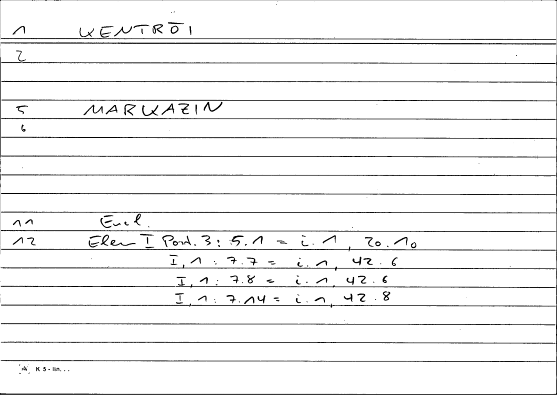 1 KENTRŌI
2
5 MARKAZIN
6
11 Eucl.
12 Elem I Post. 3 : 5.1 = i. 1, 20.10
I, 1 : 7.7 = i. 1, 42.6
I, 1 : 7.8 = i. 1, 42.6
I, 1 : 7.14 = i. 1, 42.8
K 5 - lin. . .